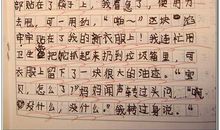 部给占在了袋子上，我看着急了，使用力
去甩，可一用约，“啪～”这块“馅
牢牢贴在了我的新衣服上！我连忙用
卫生 把 起来扔到垃圾箱里，可
衣服上留下了一块很大的油迹。“宝
贝，怎么了？”妈妈闻声转过头问，“啊
没什么，没什么。”我转过身说。“